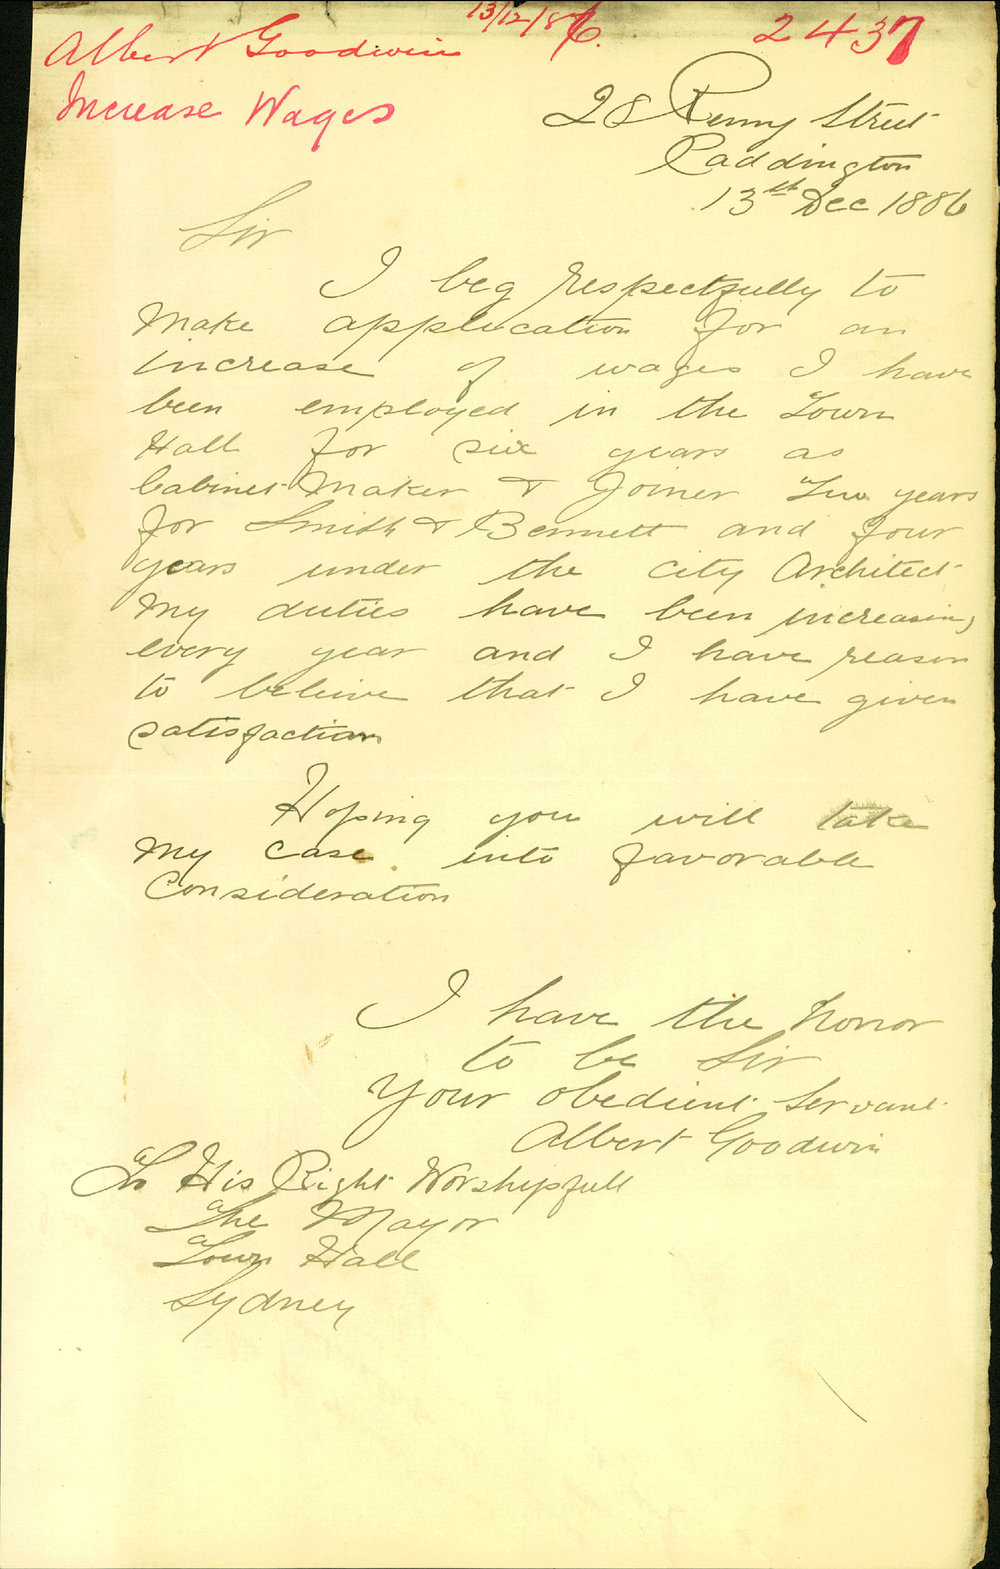 13/12/86.
2437
Albert Goodwin
Increase Wages
28 Renny Street
Paddington
13th Dec 1886
Sir
I beg respectfully to
make application for an
increase of wages I have
been employed in the Town
Hall for six years as
Cabinet Maker & Joiner Two years
for Smith & Bennett and four
years under the city Architect
My duties have been increasing
every year and I have reason
to beleive that I have given
satisfaction
Hoping you will take
my case into favorable
Consideration
I have the honor
to be Sir
Your obedient servant
Albert Goodwin
To His Right Worshipfull
The Mayor
Town Hall
Sydney